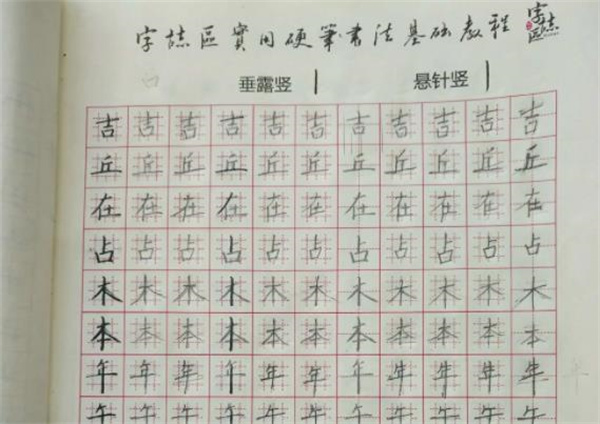 字誌區實用硬筆书法基础教程
垂露竖 悬针竖
吉 吉 吉 吉 吉 吉 吉 吉 吉 吉 吉
丘 丘 丘 丘 丘 丘 丘 丘 丘 丘 丘
在 在 在 在 在 在 在 在 在 在 在
占 占 占 占 占 占 占 占 占 占 占
木 木 木 木 木 木 木 木 木 木 木
本 本 本 本 本 本 本 本 本 本 本
年 年 年 年 年 年 年 年 年 年 年